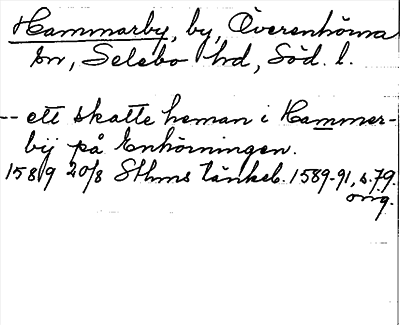 Hammarby, by, Överenhörna
sn, Selebo hd, Söd. l.
-- ett skatte heman i Hammer-
bij på Enhörningen.
1589 20/8 Sthms tänkeb. 1589-91, s. 79.
orig.